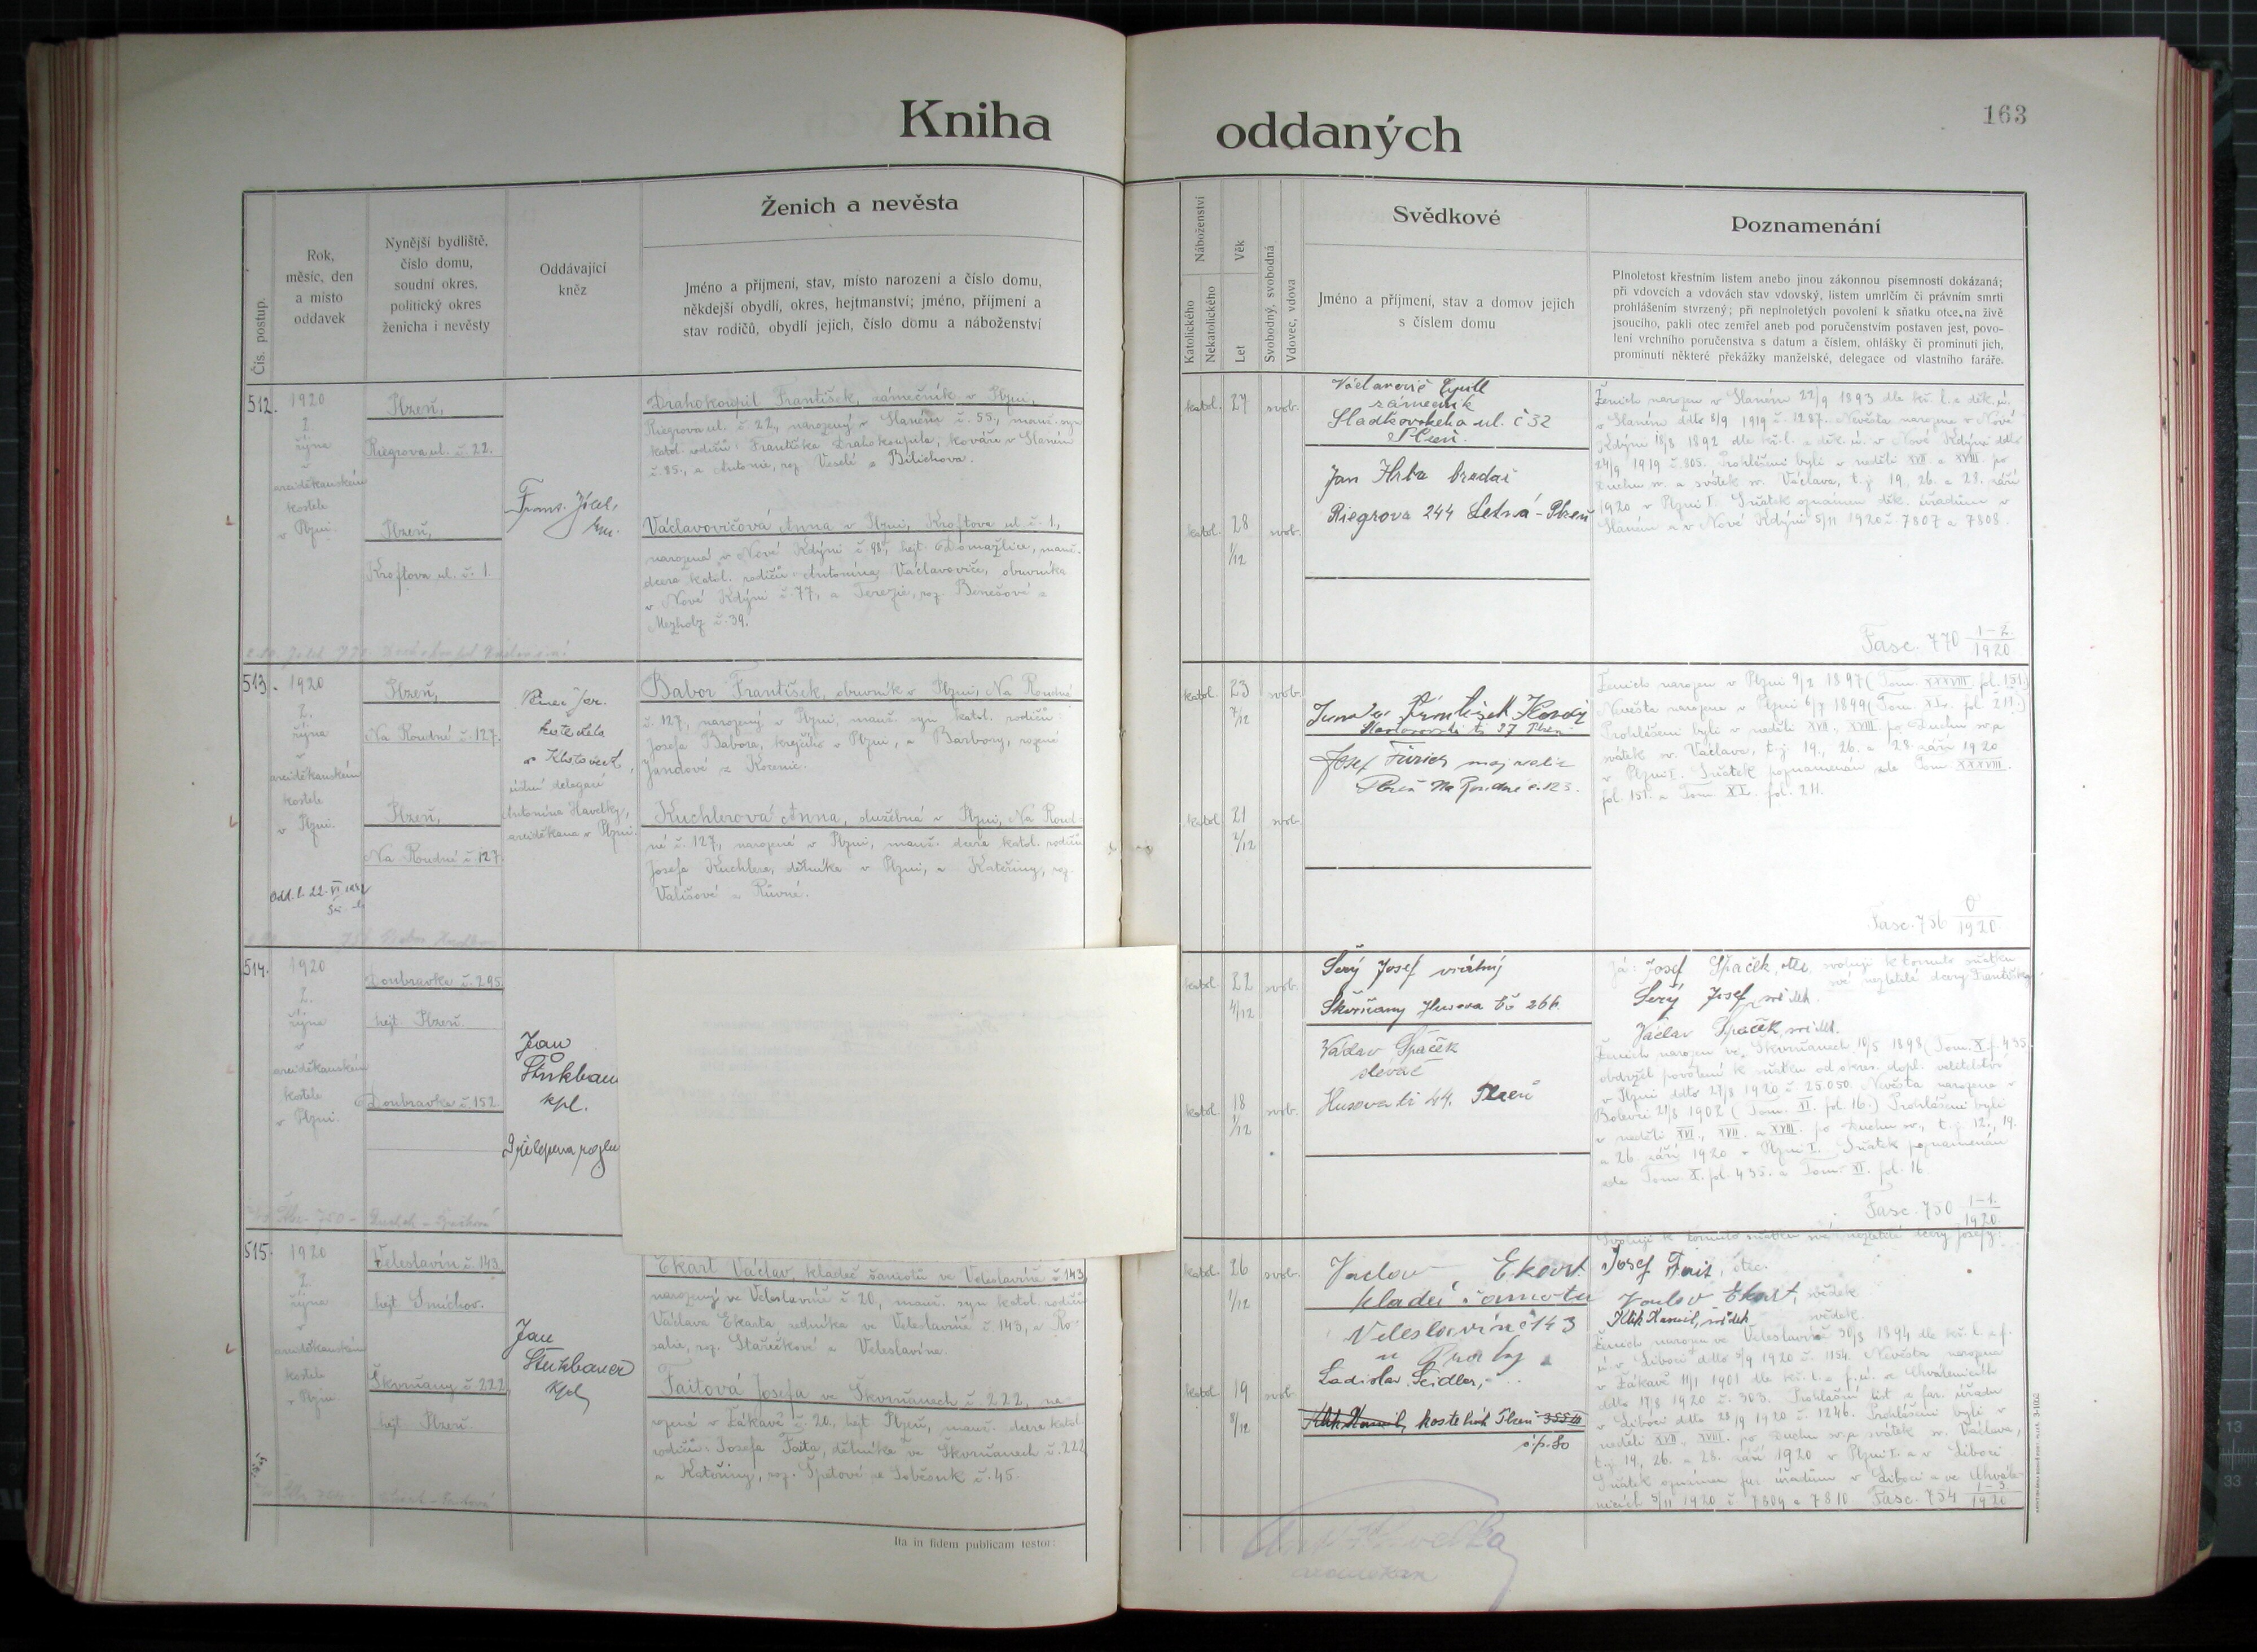 Kniha oddaných
163
Čís. postup.
Rok,
měsíc, den
a místo
oddavek
Nynější bydliště,
číslo domu,
soudní okres,
politický okres
ženicha i nevěsty
Oddávající
kněz
Ženich a nevěsta
Jméno a příjmení, stav, místo narození a číslo domu,
někdejší obydlí, okres, hejtmanství; jméno, příjmení a
stav rodičů, obydlí jejich, číslo domu a náboženství
Náboženství
Katolického
Nekatolického
Věk
Let
Svobodný, svobodná
Vdovec, vdova
Svědkové
Jméno a příjmení, stav a domov jejich
s číslem domu
Poznamenání
Plnoletost křestním listem anebo jinou zákonnou písemností dokázaná;
při vdovcích a vdovách stav vdovský, listem umrlčím či právním smrti
prohlášením stvrzený; při neplnoletých povolení k sňatku otce na živě
jsoucího, pakli otec zemřel aneb pod poručenstvím postaven jest, povo-
lení vrchního poručenstva s datum a číslem, ohlášky či prominutí jich,
prominutí některé překážky manželské, delegace od vlastního faráře.
512.
1920
2.
října
v
arciděkanském
kostele
v Plzni.
Plzeň,
Riegrova ul. č. 22.
Plzeň,
Kroftova ul. č. 1.
Drahokoupil František, zámečník v Plzni,
Riegrova ul. č. 22, narozený v Slaném č. 55, manž. syn
katol. rodičů: Františka Drahokoupila, kováře v Slaném
č. 85., a Antonie, roz. Veselé z Bílichova.
Václavovičová Anna v Plzni, Kroftova ul. č. 1,
narozená v Nové Kdýni č. 98, hejt. Domažlice, manž.
dcera katol. rodičů: Antonína Václavoviče, obuvníka
v Nové Kdýni č. 77, a Terezie, roz. Benešové z
Mezholz č. 39.
katol. 27 svob.
katol. 28 1/12 svob.
zámečník
Sladkovského ul. č 32
Plzeň.
Jan Hrba
Riegrova 244 Letná - Plzeň
Ženich narozen v Slaném 22/9 1893 dle kř. l. a děk. ú.
v Slaném ddto 8/9 1919 č. 1287. Nevěsta narozena v Nové
Kdýni 18/8 1892 dle kř. l. a děk. ú. v Nové Kdýni ddto
24/9 1919 č. 805. Prohlášeni byli v neděli XVII. a XVIII. po
Duchu sv. a svátek sv. Václava, t. j. 19., 26. a 28. září
1920 v Plzni I. Sňatek oznámen děk. úřadům v
Slaném a v Nové Kdýni 5/11 1920 č. 7807 a 7808.
Fasc. 770 1-2./1920
513.
1920
2.
října
v
arciděkanském
kostele
v Plzni.
Plzeň,
Na Roudné č. 127.
Plzeň,
Na Roudné č. 127.
Antonína Havelky,
arciděkana v Plzni.
Babor František, obuvník v Plzni, Na Roudné
č. 127, narozený v Plzni, manž. syn katol. rodičů
Josefa Babora, krejčího v Plzni, a Barbory, rozené
Jandové z Kocenic.
Kuchlerová Anna, služebná v Plzni, Na Roud-
né č. 127, narozená v Plzni, manž. dcera katol. rodičů
Josefa Kuchlera, dělníka v Plzni, a Kateřiny, roz.
katol. 23 7/12 svob.
katol. 21 2/12 svob.
Plzeň Na Roudné č. 123.
Ženich narozen v Plzni 9/2 1897 (Tom. XXXVIII. fol. 151.)
Nevěsta narozena v Plzni 6/7 1899 (Tom. XL. fol. 211.)
Prohlášeni byli v neděli XVII., XVIII. po Duchu sv. a
svátek sv. Václava, t. j. 19., 26. a 28. září 1920
v Plzni I. Sňatek poznamenán zde Tom. XXXVIII.
fol. 151. a Tom. XL. fol. 211.
Fasc. 756 0/1920
514.
1920
2.
října
v
arciděkanském
kostele
v Plzni.
Doubravka č. 295.
hejt. Plzeň.
Doubravka č. 152.
Jan
kpl.
katol. 22 4/12 svob.
katol. 18 1/12 svob.
Šerý Josef vrátný
Škvrňany Husova tř 266
Václav Špaček
slévač
Husova tř 44. Plzeň
Já: Josef Špaček, otec, svoluji k tomuto sňatku
své nezletilé dcery Františky.
Šerý Josef, svědek.
Václav Špaček, svědek.
Ženich narozen ve Škvrňanech 10/5 1898 (Tom. X. f. 435.
obdržel povolení k sňatku od okres. dopl. velitelství
v Plzni ddto 27/8 1920 č. 25.050. Nevěsta narozena v
Bolevci 21/8 1902 (Tom. VI. fol. 16.) Prohlášeni byli
v neděli XVI., XVII. a XVIII. po Duchu sv., t. j. 12., 19.
a 26. září 1920 v Plzni I. Sňatek poznamenán
zde Tom. X. fol. 435. a Tom. VI. fol. 16.
Fasc. 750 1-1./1920.
515.
1920
2.
října
v
arciděkanském
kostele
v Plzni
Veleslavín č. 143.
hejt Smíchov.
Škvrňany č. 222,
hejt. Plzeň.
Jan
kpl.
Ekart Václav, kladeč šamotů ve Veleslavíně č 143,
narozený ve Veleslavíně č 20, manž. syn katol. rodičů
Václava Ekarta, rolníka ve Veleslavíně č. 143, a Ro-
salie, roz. Stařečkové z Veleslavína.
Faitová Josefa ve Škvrňanech č. 222, na-
rozená v Žákavě č. 20., hejt. Plzeň, manž. dcera katol.
rodičů: Josefa Faita, dělníka ve Škvrňanech č. 222,
a Kateřiny, roz. Špetové ze Soběsuk č. 45.
katol. 26 1/12 svob.
katol. 19 8/12 svob.
Václav Ekart
kladeč šamotu
Veleslavín č 143
u Prahy
Ladislav Seidler,
kostelník Plzeň
č. p. 80
Svoluji k tomuto sňatku své nezletilé dcery Josefy:
Josef Fait, otec.
Ekart, svědek
svědek.
Ženich narozen ve Veleslavíně 30/8 1894 dle kř. l. a f.
ú. v Liboci ddto 5/9 1920 č. 1154. Nevěsta narozena
v Žákavě 11/1 1901 dle kř. l. a f. ú. ze Chválenicích
ddto 17/8 1920 č. 303. Prohlašní list z far. úřadu
v Liboci ddto 28/9 1920 č. 1246. Prohlášeni byli v
neděli XVII., XVIII. po Duchu sv. a svátek sv. Václava,
t. j. 19., 26. a 28. září 1920 v Plzni I. a v Liboci.
Sňatek oznámen far. úřadům v Liboci a ve Chvále-
nicích 5/11 1920 č 7809 a 7810 Fasc. 754 1-3/1920
Ita in fidem publicam testor: